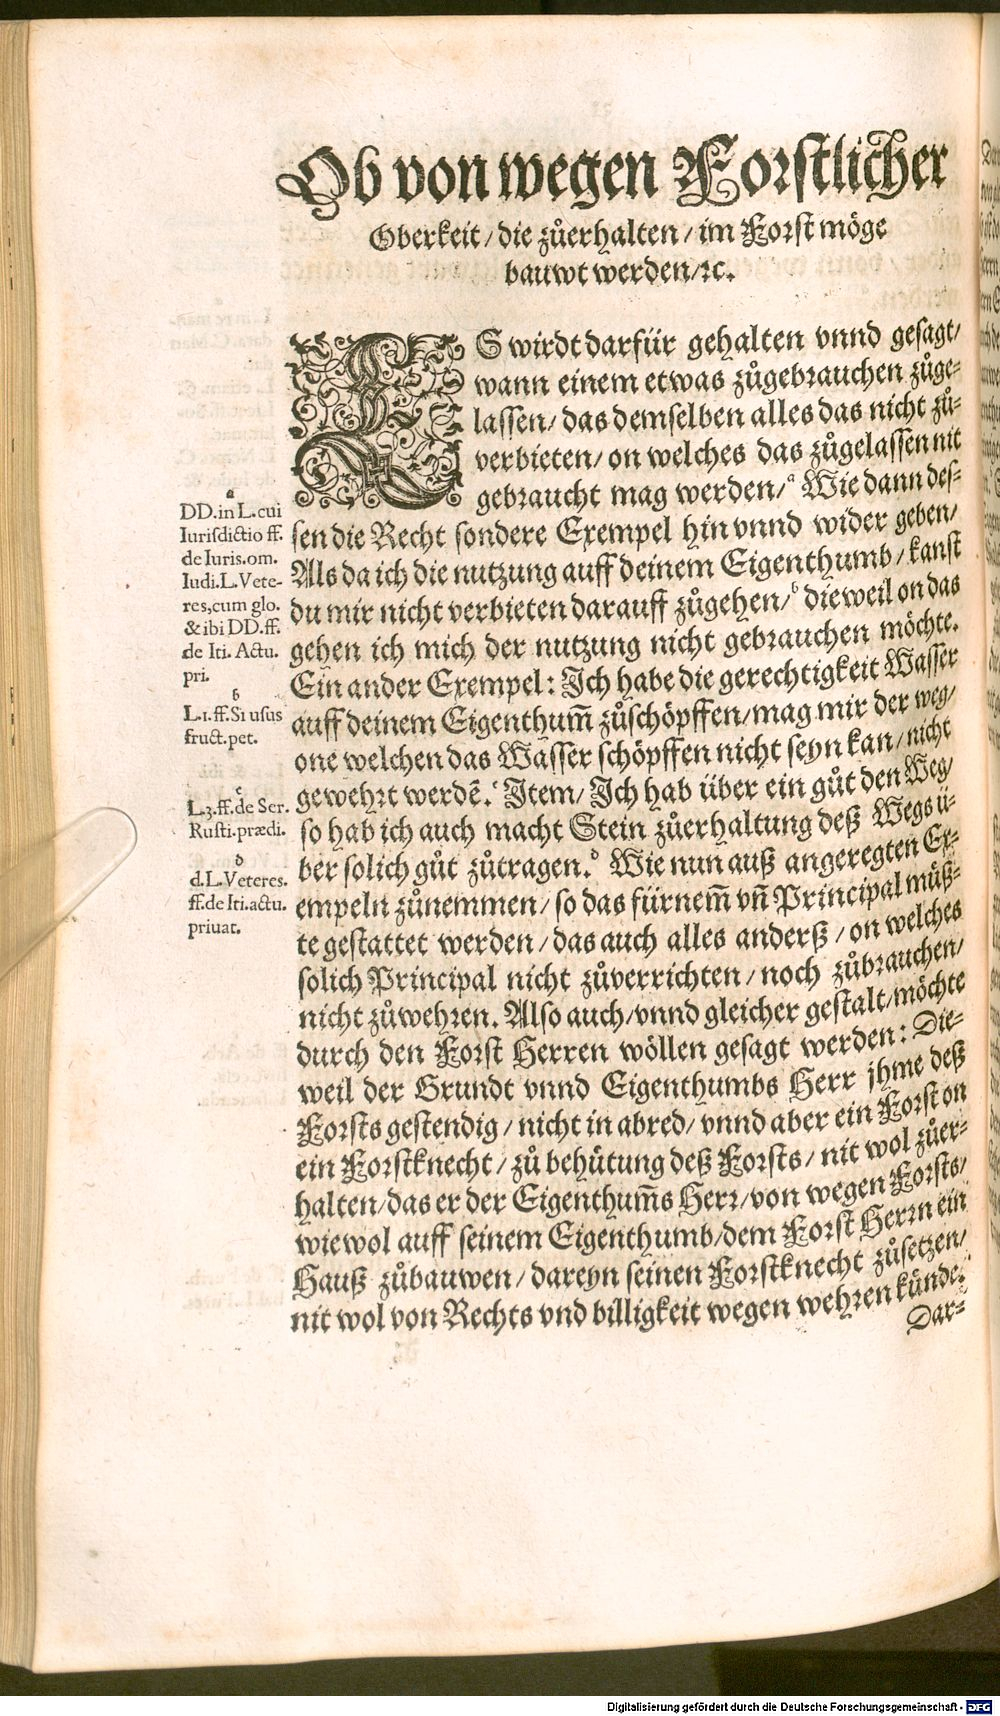 Ob von wegen Forstlicher
Oberkeit / die zůerhalten / im Forst möge
bauwt werden / ꝛc.
ES wirdt darfür gehalten vnnd gesagt /
wann einem etwas zůgebrauchen zůge-
lassen / das demselben alles das nicht zů-
verbieten / on welches das zůgelassen nit
gebraucht mag werden /ᵃ Wie dann des-
sen die Recht sondere Exempel hin vnnd wider geben /
Als da ich die nutzung auff deinem Eigenthumb / kanst
du mir nicht verbieten darauff zůgehen /ᵇ dieweil on das
gehen ich mich der nutzung nicht gebrauchen möchte.
Ein ander Exempel: Ich habe die gerechtigkeit Wasser
auff deinem Eigenthum̃ zůschöpffen / mag mir der weg /
one welchen das Wasser schöpffen nicht seyn kan / nicht
gewehrt werdẽ.ᶜ Item / Ich hab über ein gůt den Weg /
so hab ich auch macht Stein zůerhaltung deß Wegs ü-
ber solich gůt zůtragen.ᵈ Wie nun auß angeregten Ex-
empeln zůnemmen / so das fürnem̃ vñ Principal müß-
te gestattet werden / das auch alles anderß / on welches
solich Principal nicht zůverrichten / noch zůbrauchen /
nicht zůwehren. Also auch / vnnd gleicher gestalt / möchte
durch den Forst Herren wöllen gesagt werden: Die-
weil der Grundt vnnd Eigenthumbs Herr jhme deß
Forsts gestendig / nicht in abred / vnnd aber ein Forst on
ein Forstknecht / zů behütung deß Forsts / nit wol zůer-
halten / das er der Eigenthum̃s Herr / von wegen Forsts /
wiewol auff seinem Eigenthumb / dem Forst Herrn ein
Hauß zůbauwen / dareyn seinen Forstknecht zůsetzen /
nit wol von Rechts vnd billigkeit wegen wehren künde.
Dar-
a
DD. in L. cui
Iurisdictio ff.
de Iuris. om.
Iudi. L. Vete-
res, cum glo.
& ibi DD. ff.
de Iti. Actu.
pri.
b
L. 1. ff. Si usus
fruct. pet.
c
L. 3. ff. de Ser.
Rusti. prædi.
d
d. L. Veteres.
ff. de Iti. actu.
priuat.
Digitalisierung gefördert durch die Deutsche Forschungsgemeinschaft - DFG